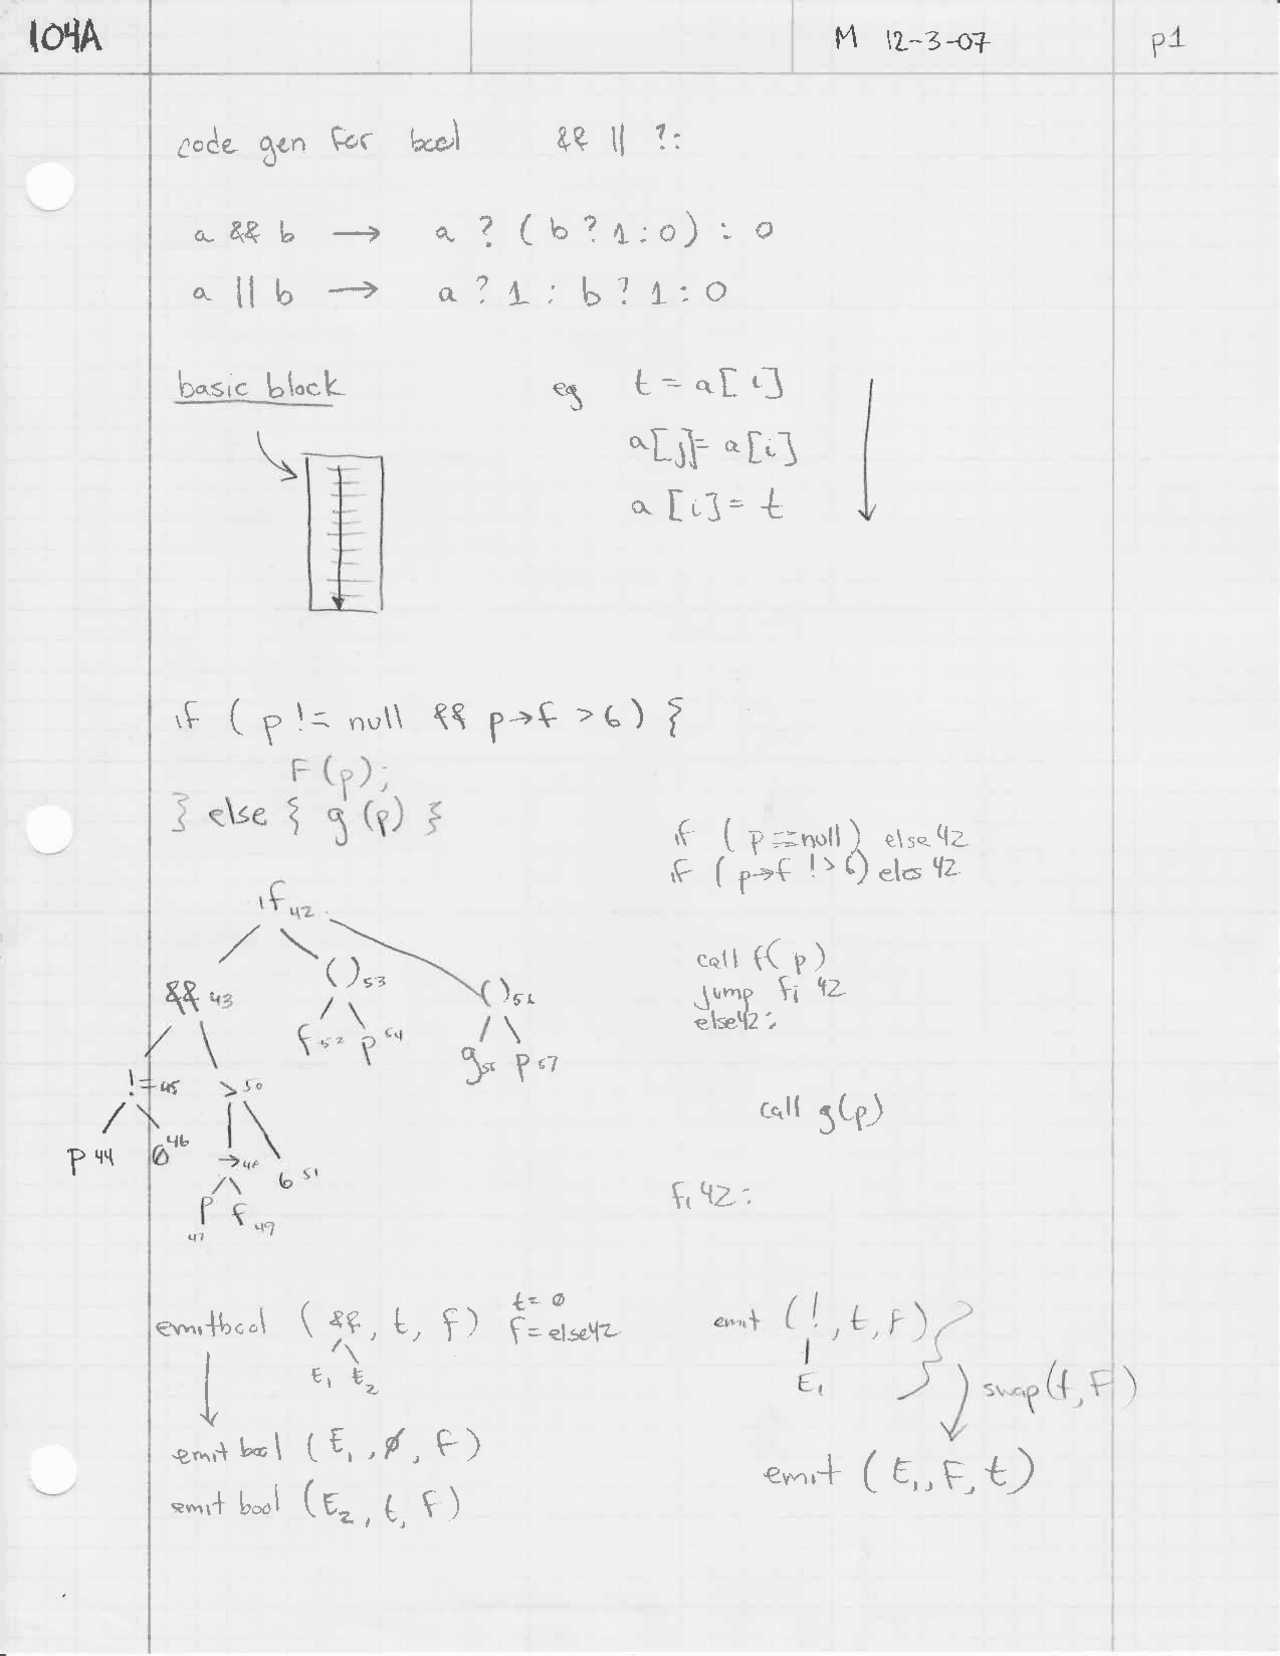 104A M 12-3-07 p1
code gen for bool && || ?:
a && b → a ? ( b ? 1 : 0 ) : 0
a || b → a ? 1 : b ? 1 : 0
basic block
eg t = a[i]
a[j] = a[i]
a[i] = t
if ( p != null && p→f > 6 ) {
F(p);
} else { g(p) }
if ( p == null ) else 42
if ( p→f !> 6 ) eles 42
call f( p )
jump fi 42
else42:
call g(p)
fi 42:
if 42
&& 43 ( ) 53 ( ) 56
f 52 p 54
g 55 p 57
!= 45 > 50
p 44 0 46 → 48 6 51
p 47 f 49
emitbool ( &&, t, f ) t = ø
f = else42
E1 E2
emit bool ( E1, ø, F )
emit bool ( E2, t, F )
emit ( !, t, F )
E1
swap(t, F)
emit ( E1, F, t )